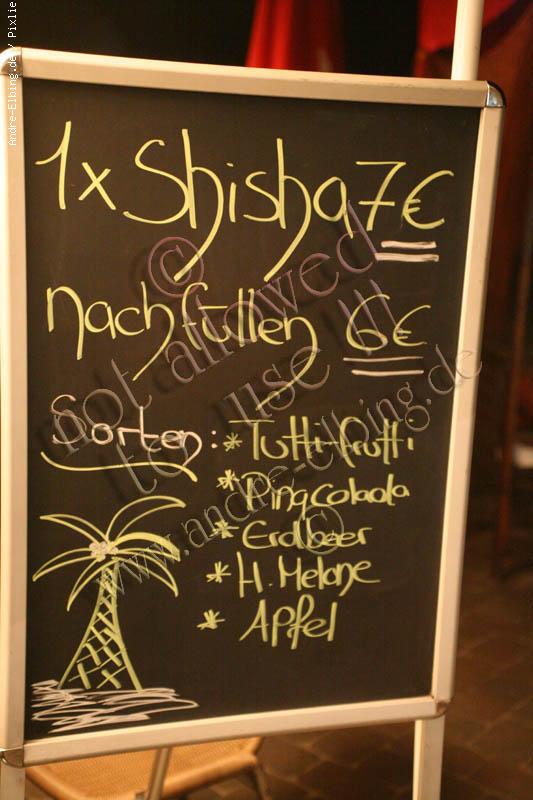 1x Shisha 7€
nachfüllen 6€
Sorten: * Tutti-frutti
* Pinacolada
* Erdbeer
* H. Melone
* Apfel
© not allowed
to use !!!
www.andre-elbing.de ©
Andre-Elbing.de / Pixlie